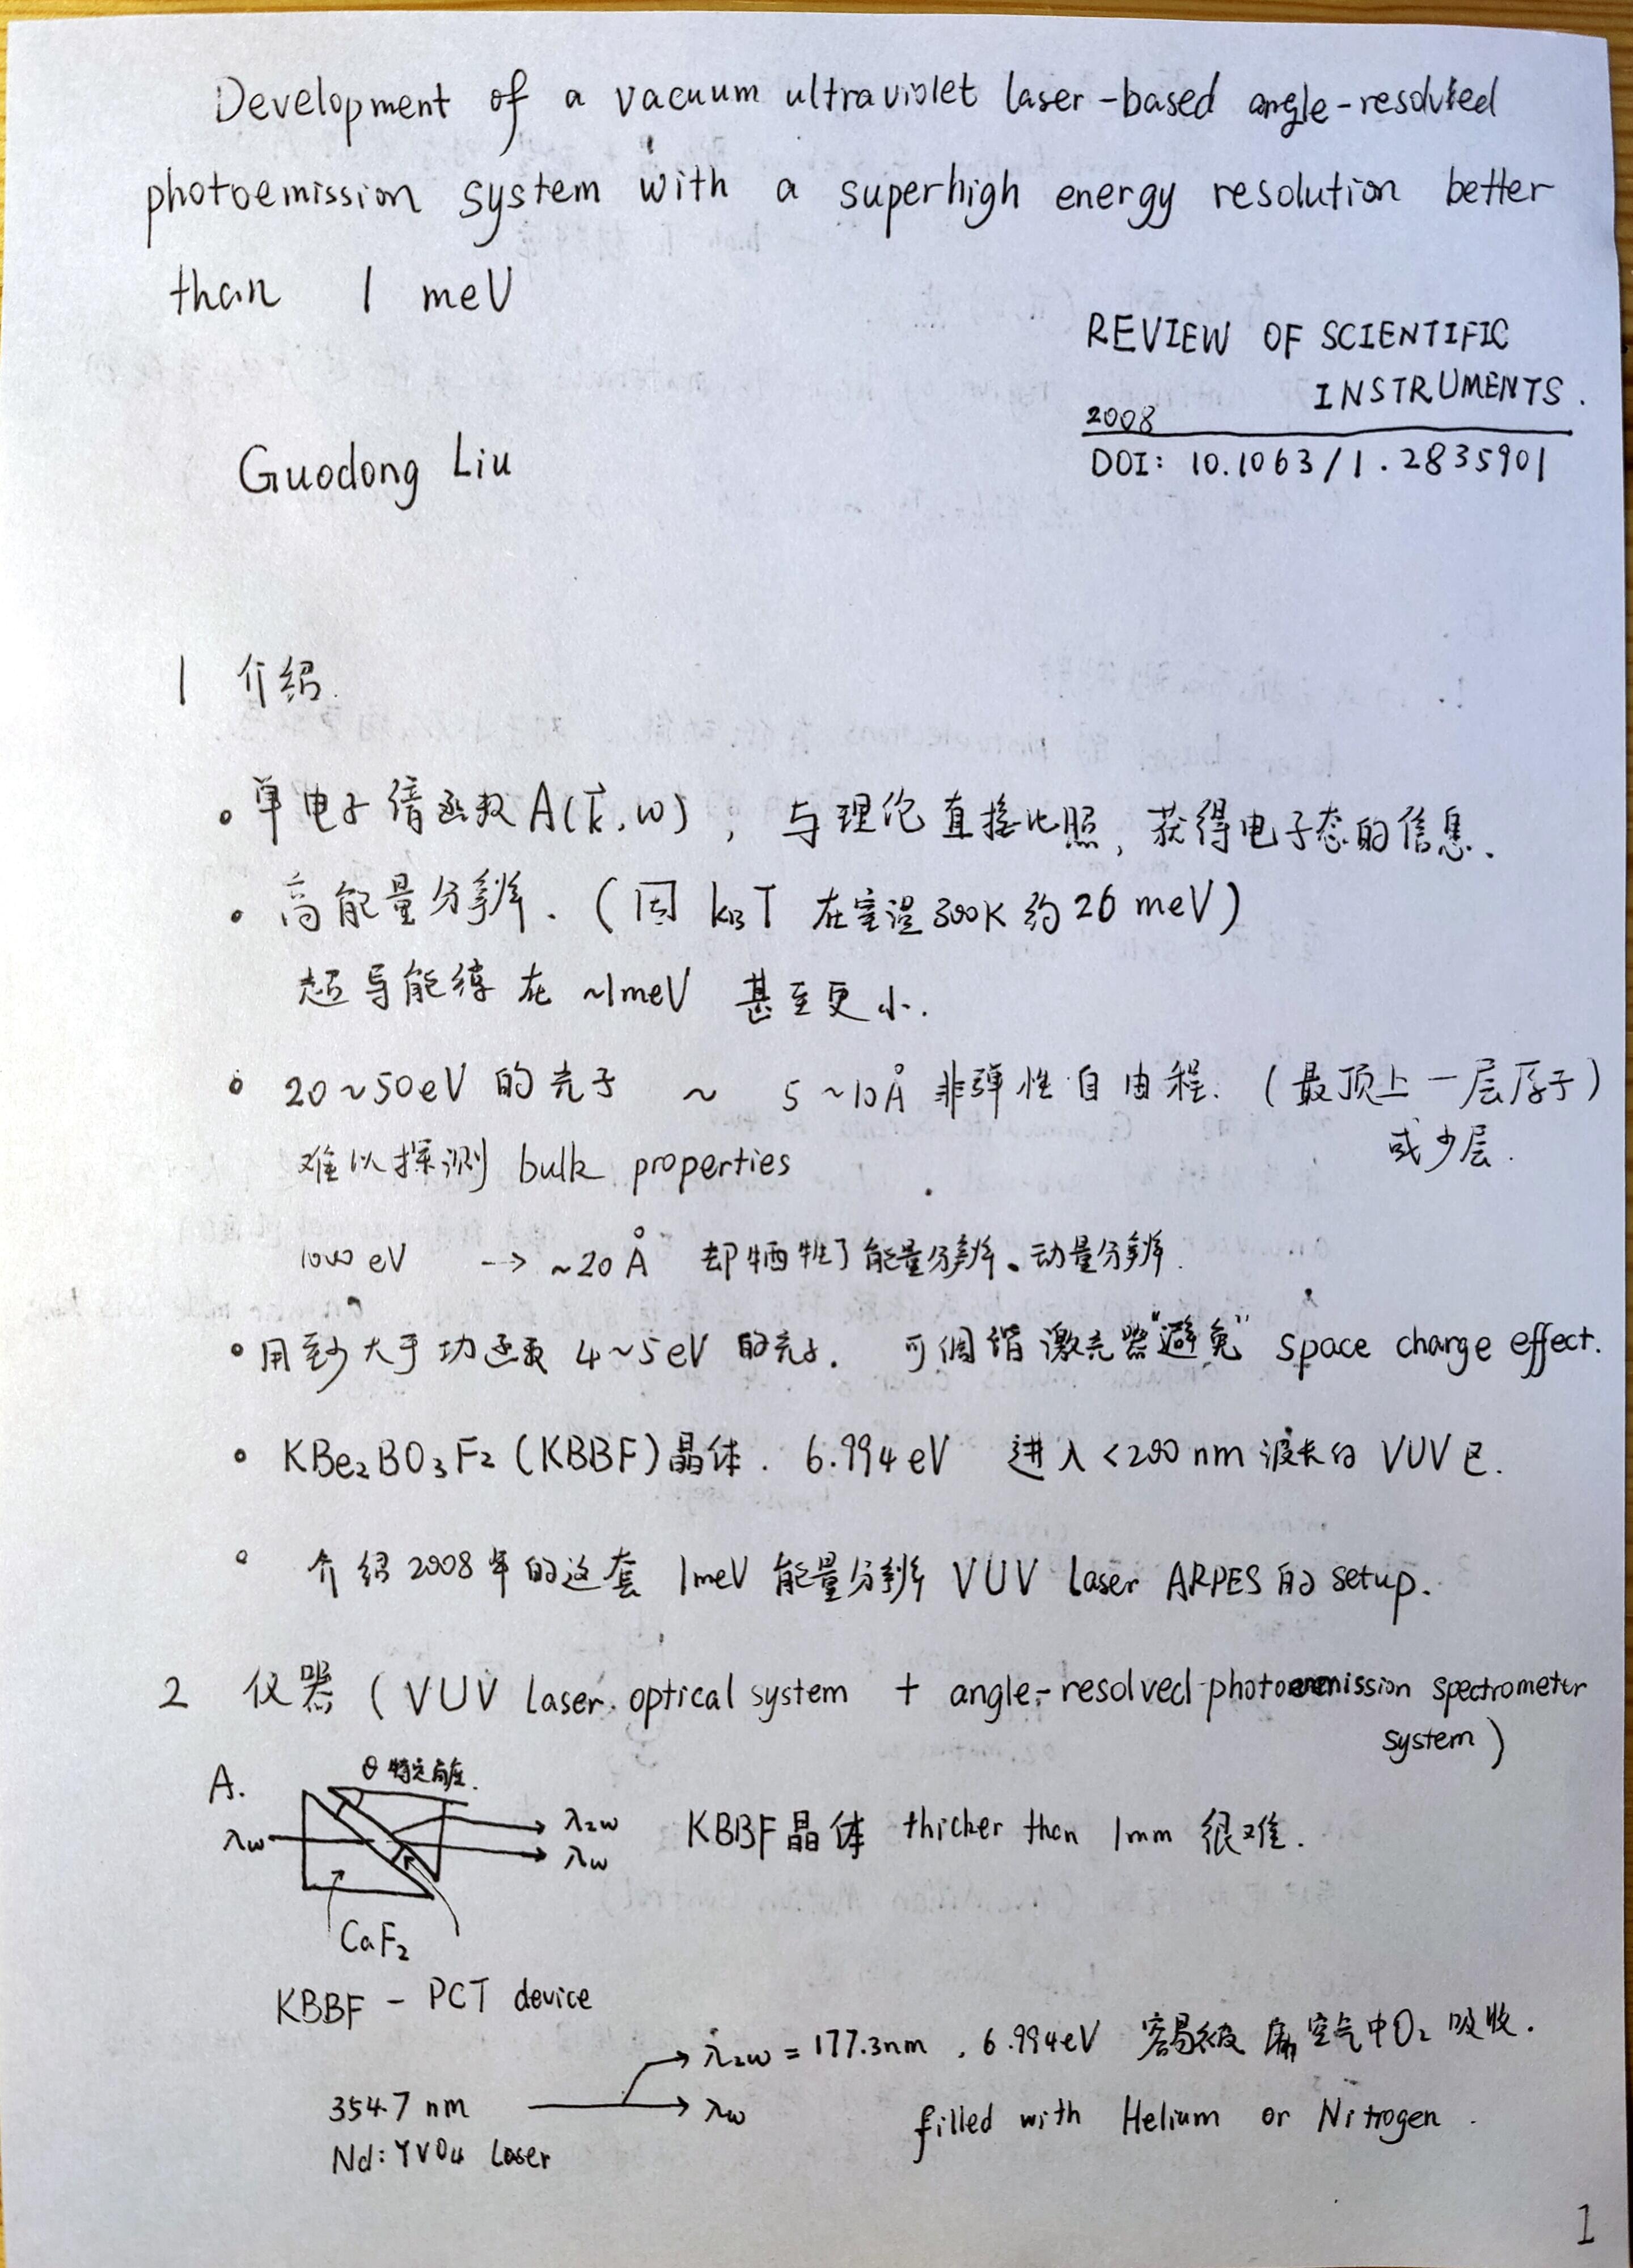 Development of a vacuum ultraviolet laser-based angle-resolved
photoemission system with a superhigh energy resolution better
than 1 meV
REVIEW OF SCIENTIFIC
INSTRUMENTS.
2008
DOI: 10.1063/1.2835901
Guodong Liu
1 介绍.
• 单电子谱函数 A(k⃗,ω), 与理论直接比照, 获得电子态的信息.
• 高能量分辨. (因 kBT 在室温300K约26 meV)
超导能隙在 ~1meV 甚至更小.
• 20~50eV 的光子 ~ 5~10Å 非弹性自由程. (最顶上一层原子)
或少层.
难以探测 bulk properties
1000 eV → ~20 Å 却牺牲了能量分辨。动量分辨.
• 用到大于功函数 4~5eV 的光子. 可调谐激光器"避免" space charge effect.
• KBe₂BO₃F₂ (KBBF)晶体. 6.994 eV 进入<200 nm 波长的 VUV 区.
• 介绍2008年的这套 1meV 能量分辨 VUV laser ARPES的 setup.
2 仪器 (VUV laser optical system + angle-resolved photoemission spectrometer
system)
A.
θ 特定角度.
λω
λ2ω
λω
KBBF晶体 thicker than 1mm 很难.
CaF₂
KBBF - PCT device
λ2ω = 177.3nm, 6.994eV 容易被空气中O₂ 吸收.
354.7 nm
λω
filled with Helium or Nitrogen.
Nd:YVO₄ laser
1